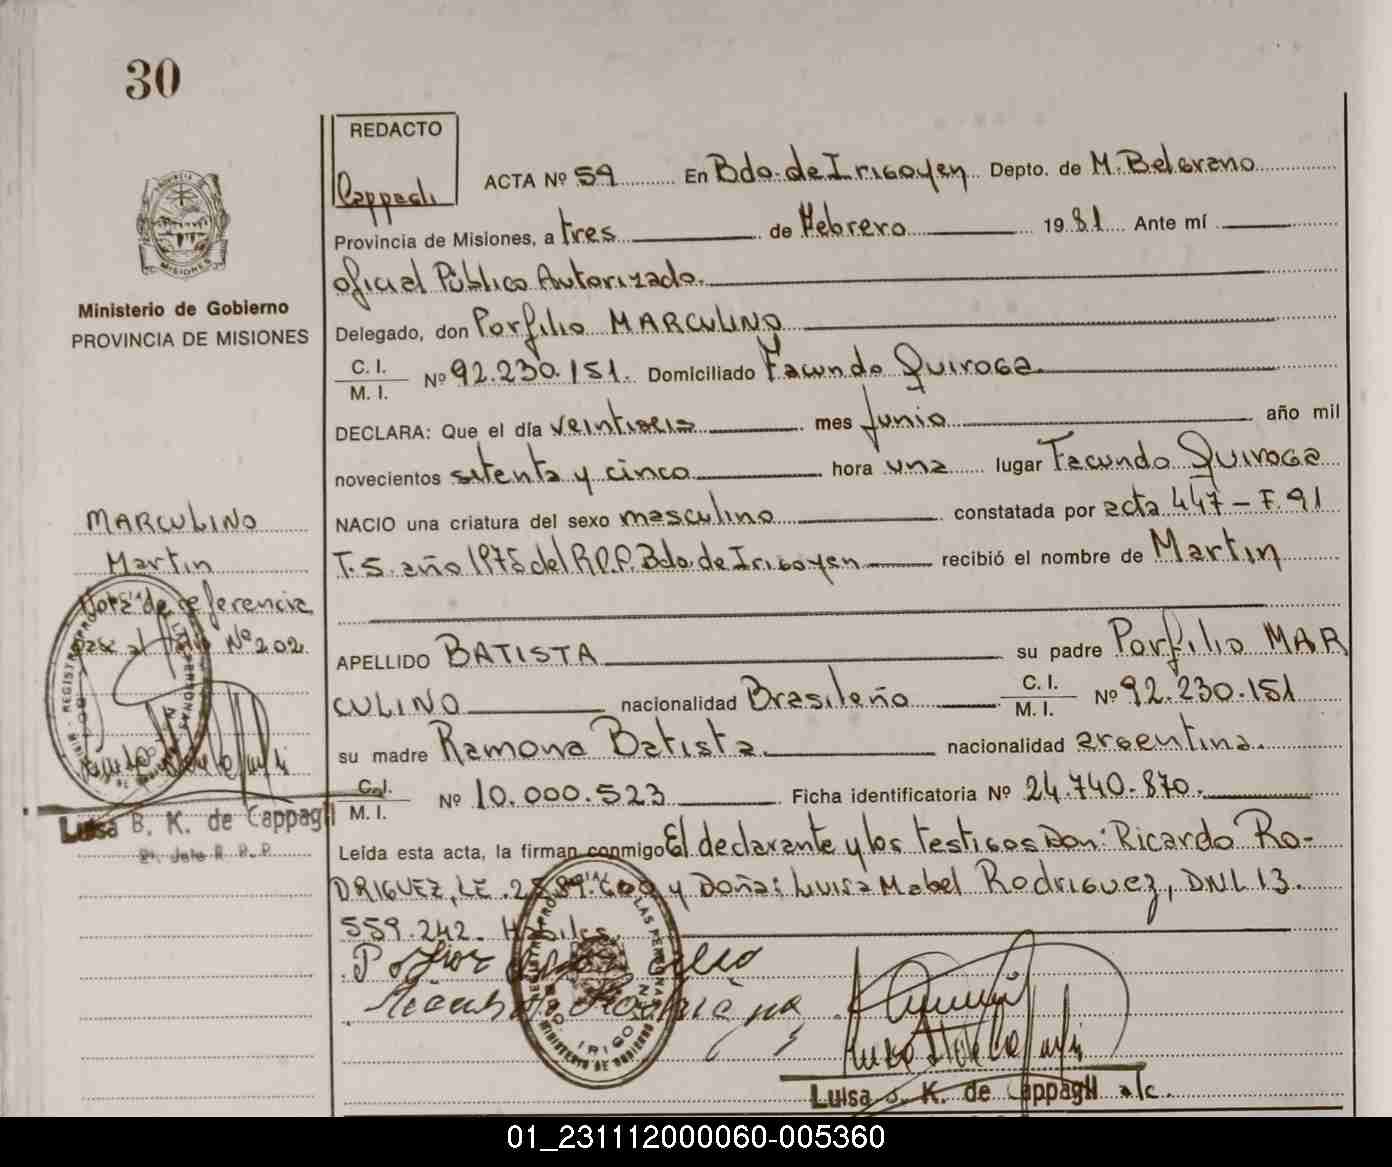 30
REDACTO
Cappagli
ACTA Nº 59 En Bdo. de Irigoyen Depto. de M. Belgrano
Provincia de Misiones, a tres de Febrero 1981 Ante mí
oficial Público Autorizado.
Delegado, don Porfilio MARCULINO
C. I.
M. I.
Nº 92.230.151. Domiciliado Facundo Quiroga
DECLARA: Que el día veintiseis mes Junio año mil
novecientos setenta y cinco hora una lugar Facundo Quiroga
NACIO una criatura del sexo masculino constatada por acta 447 - F. 91
T. S. año 1975 del R.P.P. Bdo. de Irigoyen recibió el nombre de Martin
APELLIDO BATISTA su padre Porfilio MAR
CULINO nacionalidad Brasileño C. I. M. I. Nº 92.230.151
su madre Ramona Batista nacionalidad argentina.
C. I.
M. I.
Nº 10.000.523 Ficha identificatoria Nº 24.740.870.
Leída esta acta, la firman conmigo El declarante y los testigos Don: Ricardo Ro-
DRIGUEZ, LE. y Doña: Luisa Mabel Rodriguez, DNI. 13.
559.242. Habiles.
Luisa B. K. de Cappagli a/c.
MINISTERIO DE GOBIERNO
MISIONES
Ministerio de Gobierno
PROVINCIA DE MISIONES
MARCULINO
Martin
Nota de referencia
Nº 202
Luisa B. K. de Cappagli
01_231112000060-005360